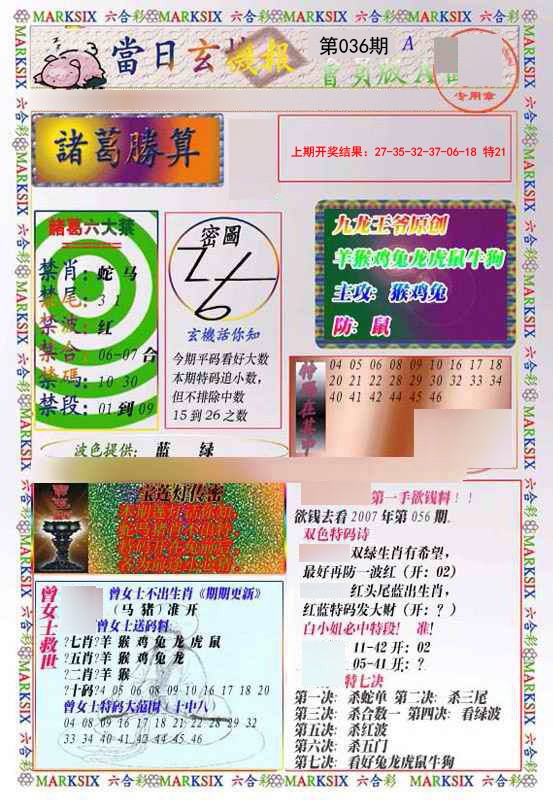 MARKSIX 六合彩 MARKSIX 六合彩 MARKSIX 六合彩 MARKSIX 六合彩
當日玄機報
第036期
A
專用章
諸葛勝算
上期开奖结果：27-35-32-37-06-18 特21
諸葛六大禁
禁肖：蛇 马
禁尾：3 1
禁波：红
禁合：06-07 合
禁碼：10 30
禁段：01 到 09
波色提供： 蓝 绿
密圖
玄機话你知
今期平码看好大数
本期特码追小数，
但不排除中数
15 到 26 之数
九龙王爷原创
羊猴鸡兔龙虎鼠牛狗
主攻：猴鸡兔
防：鼠
特碼在其中
04 05 06 08 09 10 16 17 18
20 21 22 28 29 30 32 33 34
40 41 42 44 45 46
宝莲灯传密
曾女士救世
曾女士不出生肖《期期更新》
（马 猪）准 开
曾女士送码料
?七肖?羊 猴 鸡 兔 龙 虎 鼠
?五肖?羊 猴 鸡 兔 龙
?二肖?羊 猴
?十码?4 05 06 08 09 10 16 17 18 20
曾女士特码大范围（十中八）
04 08 09 16 17 18 21 22 28 29 32
33 34 40 41 42 44 45 46
第一手欲钱料！！
欲钱去看 2007 年第 056 期.
双色特码诗
双绿生肖有希望，
最好再防一波红（开：02）
红头尾蓝出生肖，
红蓝特码发大财（开：？）
白小姐必中特段！ 准！
11-42 开：02
05-41 开：？
特七决
第一决：杀蛇单 第二决：杀三尾
第三决：杀合数一 第四决：看绿波
第五决：杀红波
第六决：杀五门
第七决：看好兔龙虎鼠牛狗
MARKSIX 六合彩 MARKSIX 六合彩 MARKSIX 六合彩 MARKSIX 六合彩